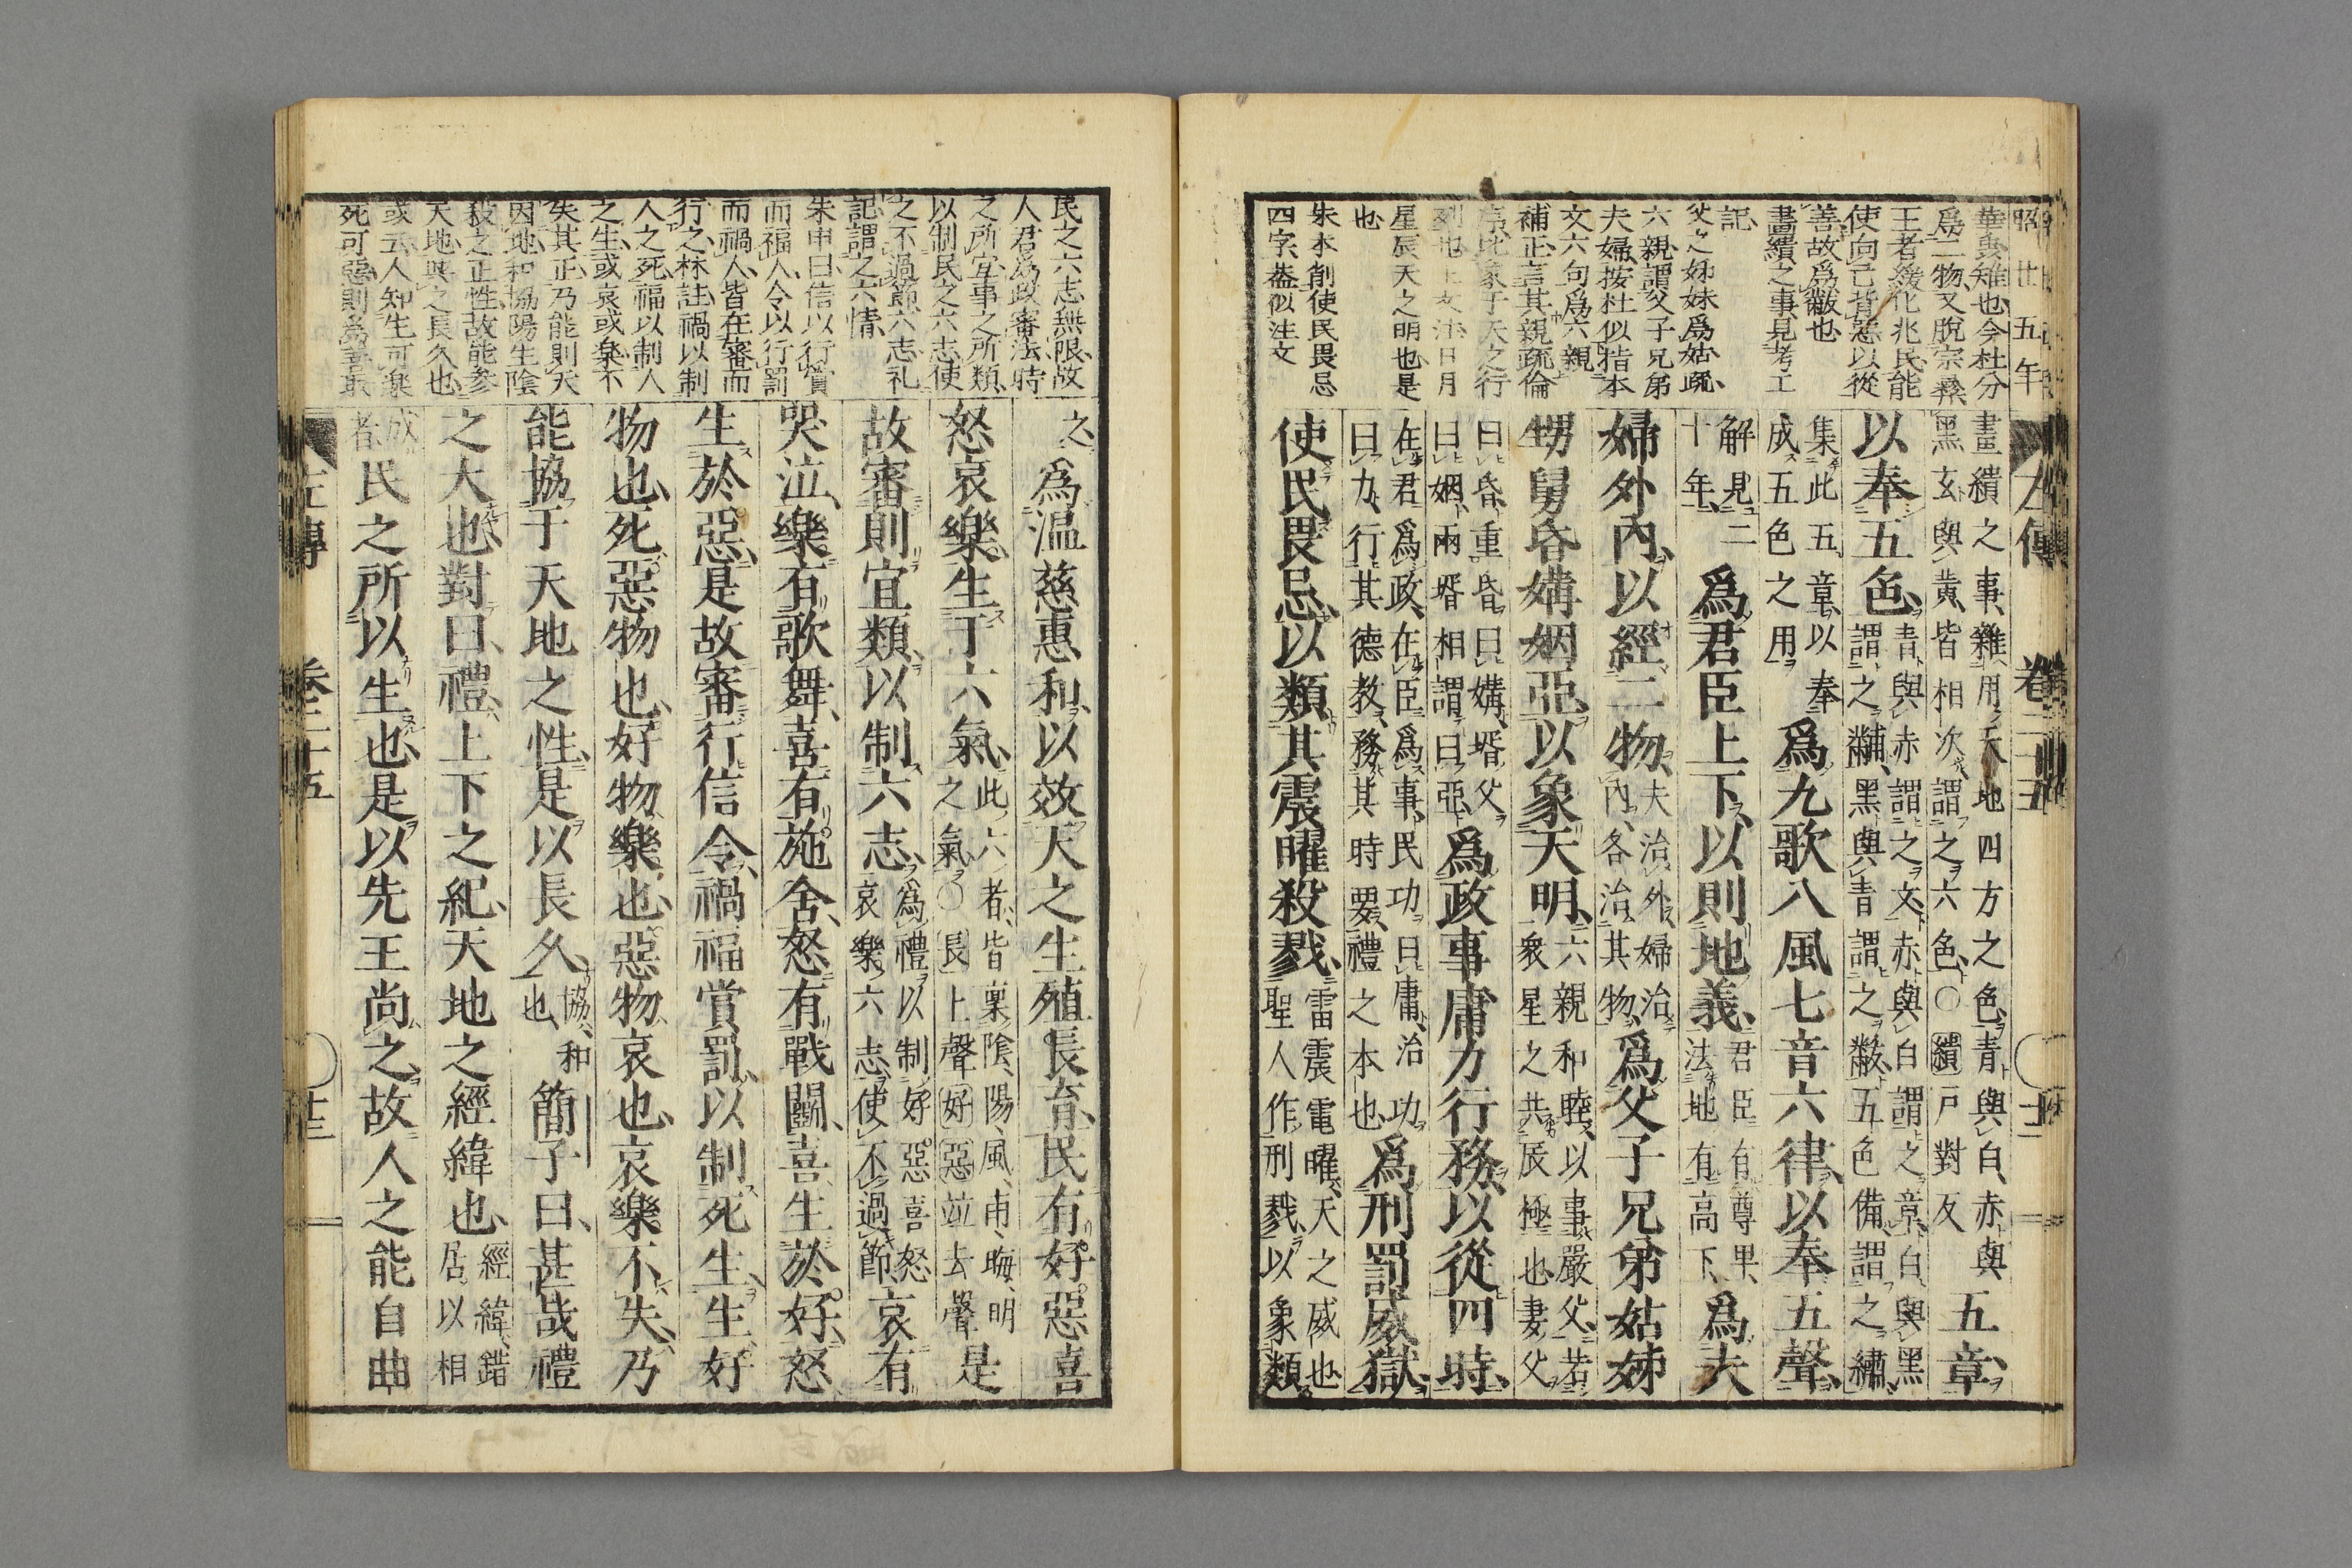 昭廿五年
華虫雉也今杜分
爲二物又脫宗彝
王者緩化兆民能
使向己背惡以從
善故爲黻也
畫繢之事見考工
記
父之姊妹爲姑疏
六親謂父子兄弟
夫婦按杜似指本
文六句爲六親
補正言其親疏倫
序比象于天之行
列也上文注日月
星辰天之明也是
也
朱本創使民畏忌
四字葢似注文
左傳 卷二十五 十二
畫繢之事、雜用天地四方之色、青與白、赤與黑、玄與黃、皆相次、謂之六色、○繢戶對反 五章、
以奉五色、青與赤謂之文、赤與白謂之章、白與黑謂之黼、黑與青謂之黻、五色備、謂之繡、
集此五章、以奉成五色之用 爲九歌八風七音六律、以奉五聲、
解見二十年、 爲君臣上下、以則地義、君臣有尊卑、法地有高下、 爲夫
婦外內、以經二物、夫治外、婦治內、各治其物、 爲父子兄弟姑姊
甥舅昏媾姻亞、以象天明、六親和睦、以事嚴父、若衆星之共辰極也、妻父
曰昏、重昏曰媾、壻父曰姻、兩壻相謂曰亞、 爲政事庸力行務、以從四時、
在君爲政、在臣爲事、民功曰庸、治功曰力、行其德教、務其時要、禮之本也、 爲刑罰威獄、
使民畏忌、以類其震曜殺戮、雷震電曜、天之威也、聖人作刑戮、以象類
民之六志無限故
人君爲政審法時
之所宜事之所類
以制民之六志使
之不過節六志礼
記謂之六情
朱申曰信以行賞
而福人令以行罰
而禍人皆在審而
行之林註禍以制
人之死福以制人
之生或哀或樂不
失其正乃能則天
因地和協陽生陰
殺之正性故能參
天地與之長久也
或云人知生可樂
死可惡則爲善最
之、爲溫慈惠和、以效天之生殖長育、民有好惡喜
怒哀樂、生于六氣、此六者、皆稟陰、陽、風、雨、晦、明之氣、○長上聲好惡竝去聲 是
故審則宜類、以制六志、爲禮以制好惡喜怒哀樂六志、使不過節、 哀有
哭泣、樂有歌舞、喜有施舍、怒有戰鬭、喜生於好、怒
生於惡、是故審行信令、禍福賞罰、以制死生、生好
物也、死惡物也、好物樂也、惡物哀也、哀樂不失、乃
能協于天地之性、是以長久、協、和也、 簡子曰、甚哉禮
之大也、對曰、禮上下之紀、天地之經緯也、經緯、錯居以相
成者、民之所以生也、是以先王尚之、故人之能自曲
左傳 卷二十五 十三